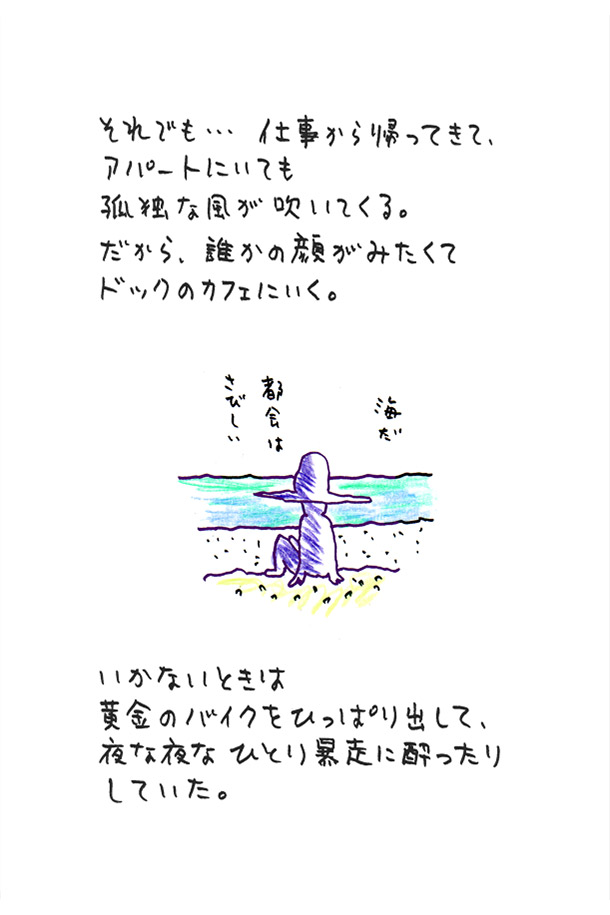 それでも… 仕事から帰ってきて、
アパートにいても
孤独な風が吹いてくる。
だから、誰かの顔がみたくて
ドックのカフェにいく。
海だ
都会は
さびしい
いかないときは
黄金のバイクをひっぱり出して、
夜な夜な ひとり暴走に酔ったり
していた。